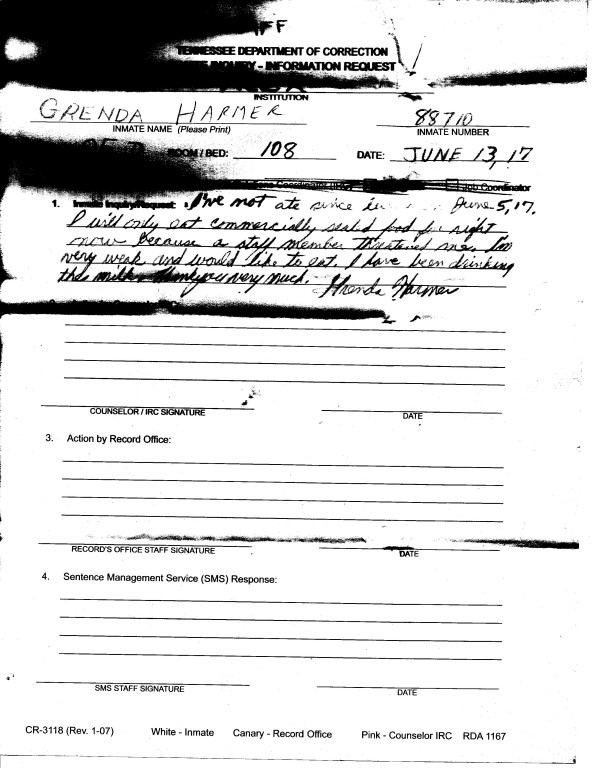 TENNESSEE DEPARTMENT OF CORRECTION
INQUIRY - INFORMATION REQUEST
INSTITUTION
GRENDA HARMER 88710
INMATE NAME (Please Print) INMATE NUMBER
ROOM / BED: 108 DATE: JUNE 13, 17
Coordinator
1. Inmate Inquiry/Request: I've not ate since June 5, 17.
I will only eat commercially seald food for right
now because a staff member threatened me. I'm
very weak and would like to eat. I have been drinking
the milk. Thank you very much. Grenda Harmer
COUNSELOR / IRC SIGNATURE DATE
3. Action by Record Office:
RECORD'S OFFICE STAFF SIGNATURE DATE
4. Sentence Management Service (SMS) Response:
SMS STAFF SIGNATURE DATE
CR-3118 (Rev. 1-07) White - Inmate Canary - Record Office Pink - Counselor IRC RDA 1167